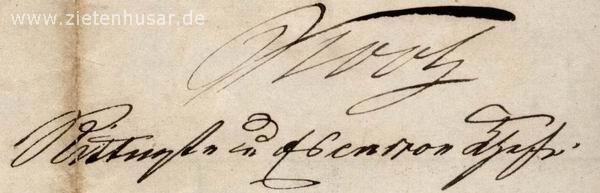 www.zietenhusar.de
Rittmstr u Escadron Chef.